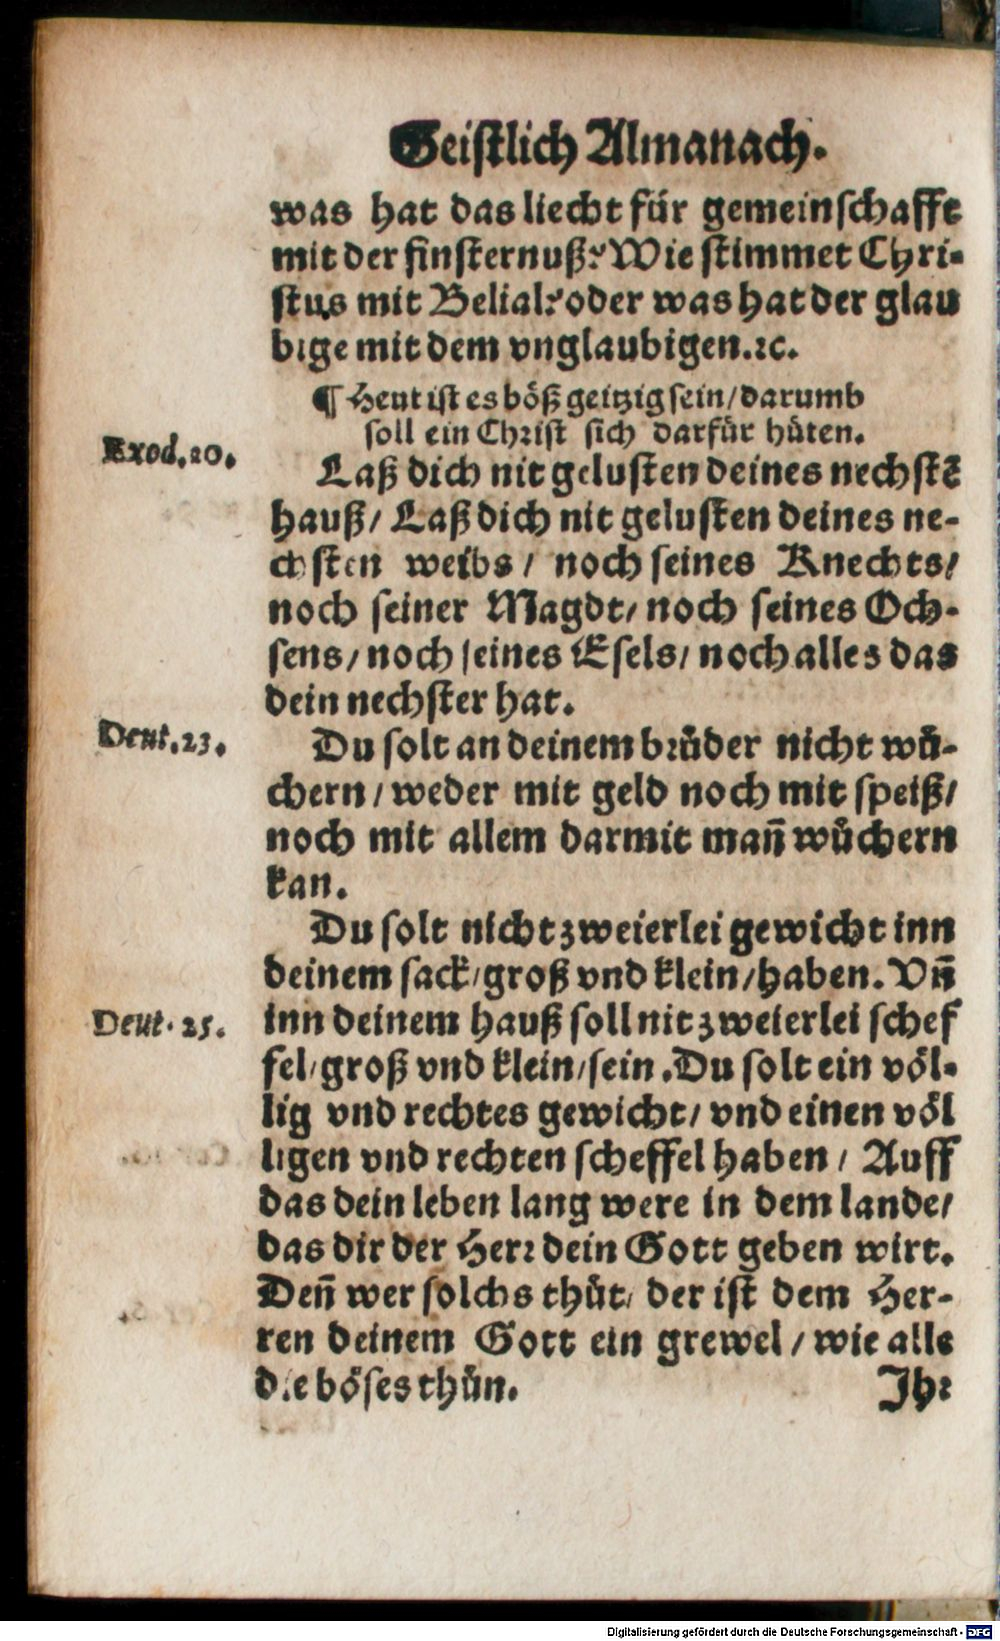 Geistlich Almanach.
was hat das liecht für gemeinschafft
mit der finsternuß? Wie stimmet Chri-
stus mit Belial? oder was hat der glau
bige mit dem vnglaubigen. ꝛc.
¶ Heut ist es böß geitzig sein / darumb
soll ein Christ sich darfür hüten.
Exod. 20.
Laß dich nit gelusten deines nechstē
hauß / Laß dich nit gelusten deines ne-
chsten weibs / noch seines Knechts /
noch seiner Magdt / noch seines Och-
sens / noch seines Esels / noch alles das
dein nechster hat.
Deut. 23.
Du solt an deinem brůder nicht wů-
chern / weder mit geld noch mit speiß /
noch mit allem darmit mañ wůchern
kan.
Du solt nicht zweierlei gewicht inn
deinem sack / groß vnd klein / haben. Vñ
Deut. 25.
inn deinem hauß soll nit zweierlei schef
fel / groß vnd klein / sein. Du solt ein völ-
lig vnd rechtes gewicht / vnd einen völ
ligen vnd rechten scheffel haben / Auff
das dein leben lang were in dem lande /
das dir der Herr dein Gott geben wirt.
Deñ wer solchs thůt / der ist dem Her-
ren deinem Gott ein grewel / wie alle
die böses thůn.
Ihr
Digitalisierung gefördert durch die Deutsche Forschungsgemeinschaft - DFG